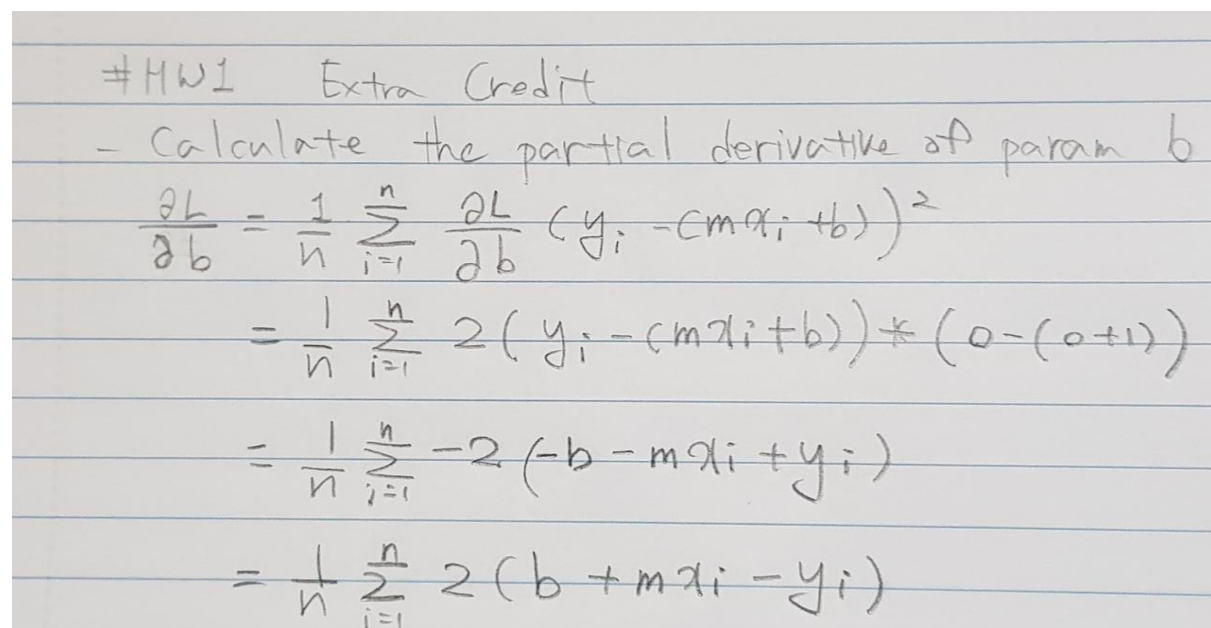 #HW1 Extra Credit
- Calculate the partial derivative of param b
∂L/∂b = 1/n Σ_{i=1}^{n} ∂L/∂b (y_i - (mx_i + b))^2
= 1/n Σ_{i=1}^{n} 2(y_i - (mx_i + b)) * (0 - (0+1))
= 1/n Σ_{i=1}^{n} -2(-b - mx_i + y_i)
= 1/n Σ_{i=1}^{n} 2(b + mx_i - y_i)